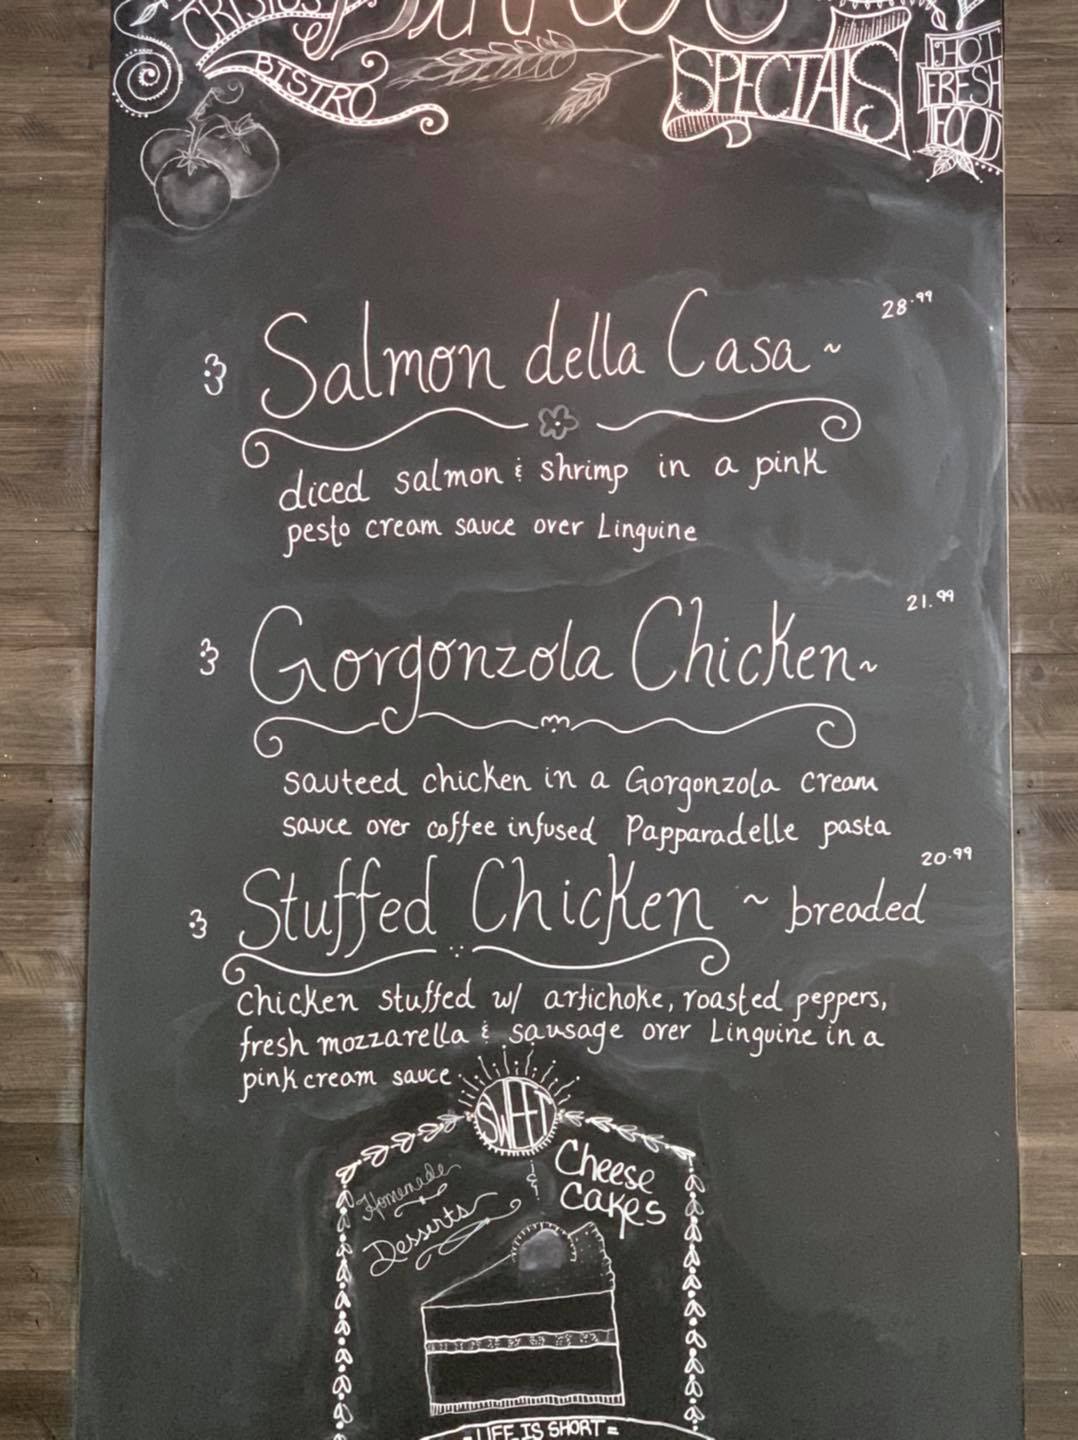 CRISTOS
BISTRO
Dinner
SPECIALS
HOT
FRESH
FOOD
28.99
Salmon della Casa ~
diced salmon & shrimp in a pink
pesto cream sauce over Linguine
21.99
Gorgonzola Chicken~
sauteed chicken in a Gorgonzola cream
sauce over coffee infused Papparadelle pasta
20.99
Stuffed Chicken ~ breaded
chicken stuffed w/ artichoke, roasted peppers,
fresh mozzarella & sausage over Linguine in a
pink cream sauce
SWEET
Homemade
Desserts
&
Cheese
Cakes
LIFE IS SHORT